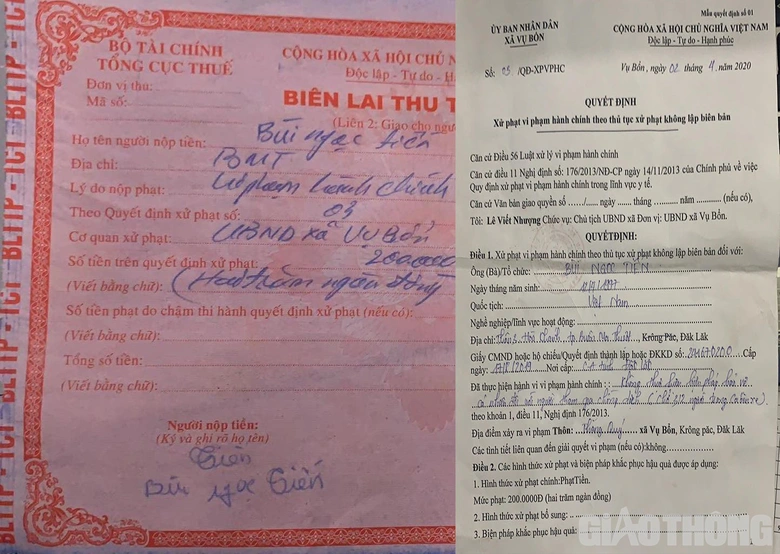 BLTTP - TCT
BỘ TÀI CHÍNH
TỔNG CỤC THUẾ
CỘNG HÒA XÃ HỘI CHỦ NG
Độc lập - Tự do - Hạnh
Đơn vị thu:
Mã số:
BIÊN LAI THU T
(Liên 2: Giao cho ngườ
Họ tên người nộp tiền: Bùi Ngọc Tiến
Địa chỉ: BMT
Lý do nộp phạt: Vi phạm hành chính
Theo Quyết định xử phạt số: 03
Cơ quan xử phạt: UBND xã Vụ Bổn
Số tiền trên quyết định xử phạt: 200.000
(Viết bằng chữ): (Hai trăm ngàn đồng
Số tiền phạt do chậm thi hành quyết định xử phạt (nếu có):
(Viết bằng chữ):
Tổng số tiền:
(Viết bằng chữ):
Người nộp tiền:
(Ký và ghi rõ họ tên)
Tiến
Bùi Ngọc Tiến
Mẫu quyết định số 01
ỦY BAN NHÂN DÂN
XÃ VỤ BỔN
CỘNG HÒA XÃ HỘI CHỦ NGHĨA VIỆT NAM
Độc lập - Tự do - Hạnh phúc
Số: 03 /QĐ-XPVPHC
Vụ Bổn, ngày 02 tháng 4 năm 2020
QUYẾT ĐỊNH
Xử phạt vi phạm hành chính theo thủ tục xử phạt không lập biên bản
Căn cứ Điều 56 Luật xử lý vi phạm hành chính
Căn cứ điều 11 Nghị định số: 176/2013/NĐ-CP ngày 14/11/2013 của Chính phủ về việc
Quy định xử phạt vi phạm hành chính trong lĩnh vực y tế.
Căn cứ Văn bản giao quyền số ....../..... ngày ...... tháng .......... năm .......... (nếu có),
Tôi: Lê Viết Nhượng Chức vụ: Chủ tịch UBND xã Đơn vị: UBND xã Vụ Bổn.
QUYẾT ĐỊNH:
Điều 1. Xử phạt vi phạm hành chính theo thủ tục xử phạt không lập biên bản đối với:
Ông (Bà)/Tổ chức: BÙI NGỌC TIẾN
Ngày tháng năm sinh: /1977
Quốc tịch: Việt Nam
Nghề nghiệp/lĩnh vực hoạt động:
Địa chỉ: tp Buôn Ma Thuột, Krông Păc, Đăk Lăk
Giấy CMND hoặc hộ chiếu/Quyết định thành lập hoặc ĐKKD số: Cấp
ngày: Nơi cấp: CA tỉnh Đắk Lắk
Đã thực hiện hành vi vi phạm hành chính : không thực hiện biện pháp bảo vệ
cá nhân đối với người tham gia chống dịch
theo khoản 1, điều 11, Nghị định 176/2013.
Địa điểm xảy ra vi phạm Thôn: Thăng Quý xã Vụ Bổn, Krông Păc, Đăk Lăk
Các tình tiết liên quan đến giải quyết vi phạm (nếu có):không
Điều 2. Các hình thức xử phạt và biện pháp khắc phục hậu quả được áp dụng:
1. Hình thức xử phạt chính:PhạtTiền.
Mức phạt: 200.000Đ (hai trăm ngàn đồng)
2. Hình thức xử phạt bổ sung:
3. Biện pháp khắc phục hậu quả:
GIAOTHÔNG